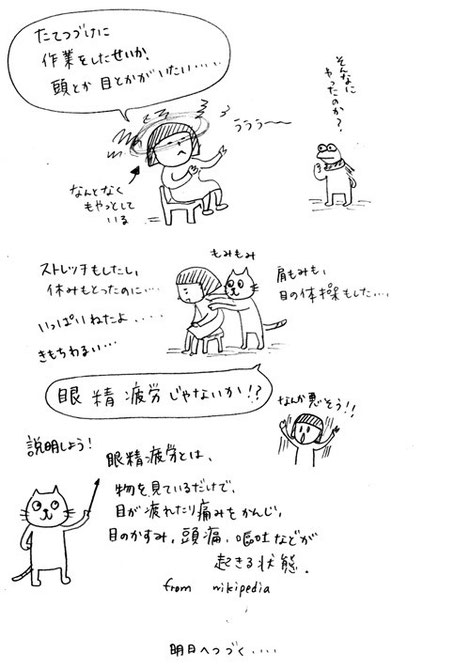 たてつづけに
作業をしたせいか、
頭とか目とかがいたい・・・・・
そんなに
やったのか？
うううー〜
なんとなく
もやっとして
いる
もみもみ
ストレッチもしたし、
休みもとったのに・・・
いっぱいねたよ・・・・
きもちわるい・・・
肩もみも、
目の体操もした・・・、
眼精疲労じゃないか!?
なんか悪そう!!
説明しよう！
眼精疲労とは、
物を見ているだけで、
目が疲れたり痛みをかんじ、
目のかすみ、頭痛、嘔吐などが
起きる状態。
from wikipedia
明日へつづく・・・・